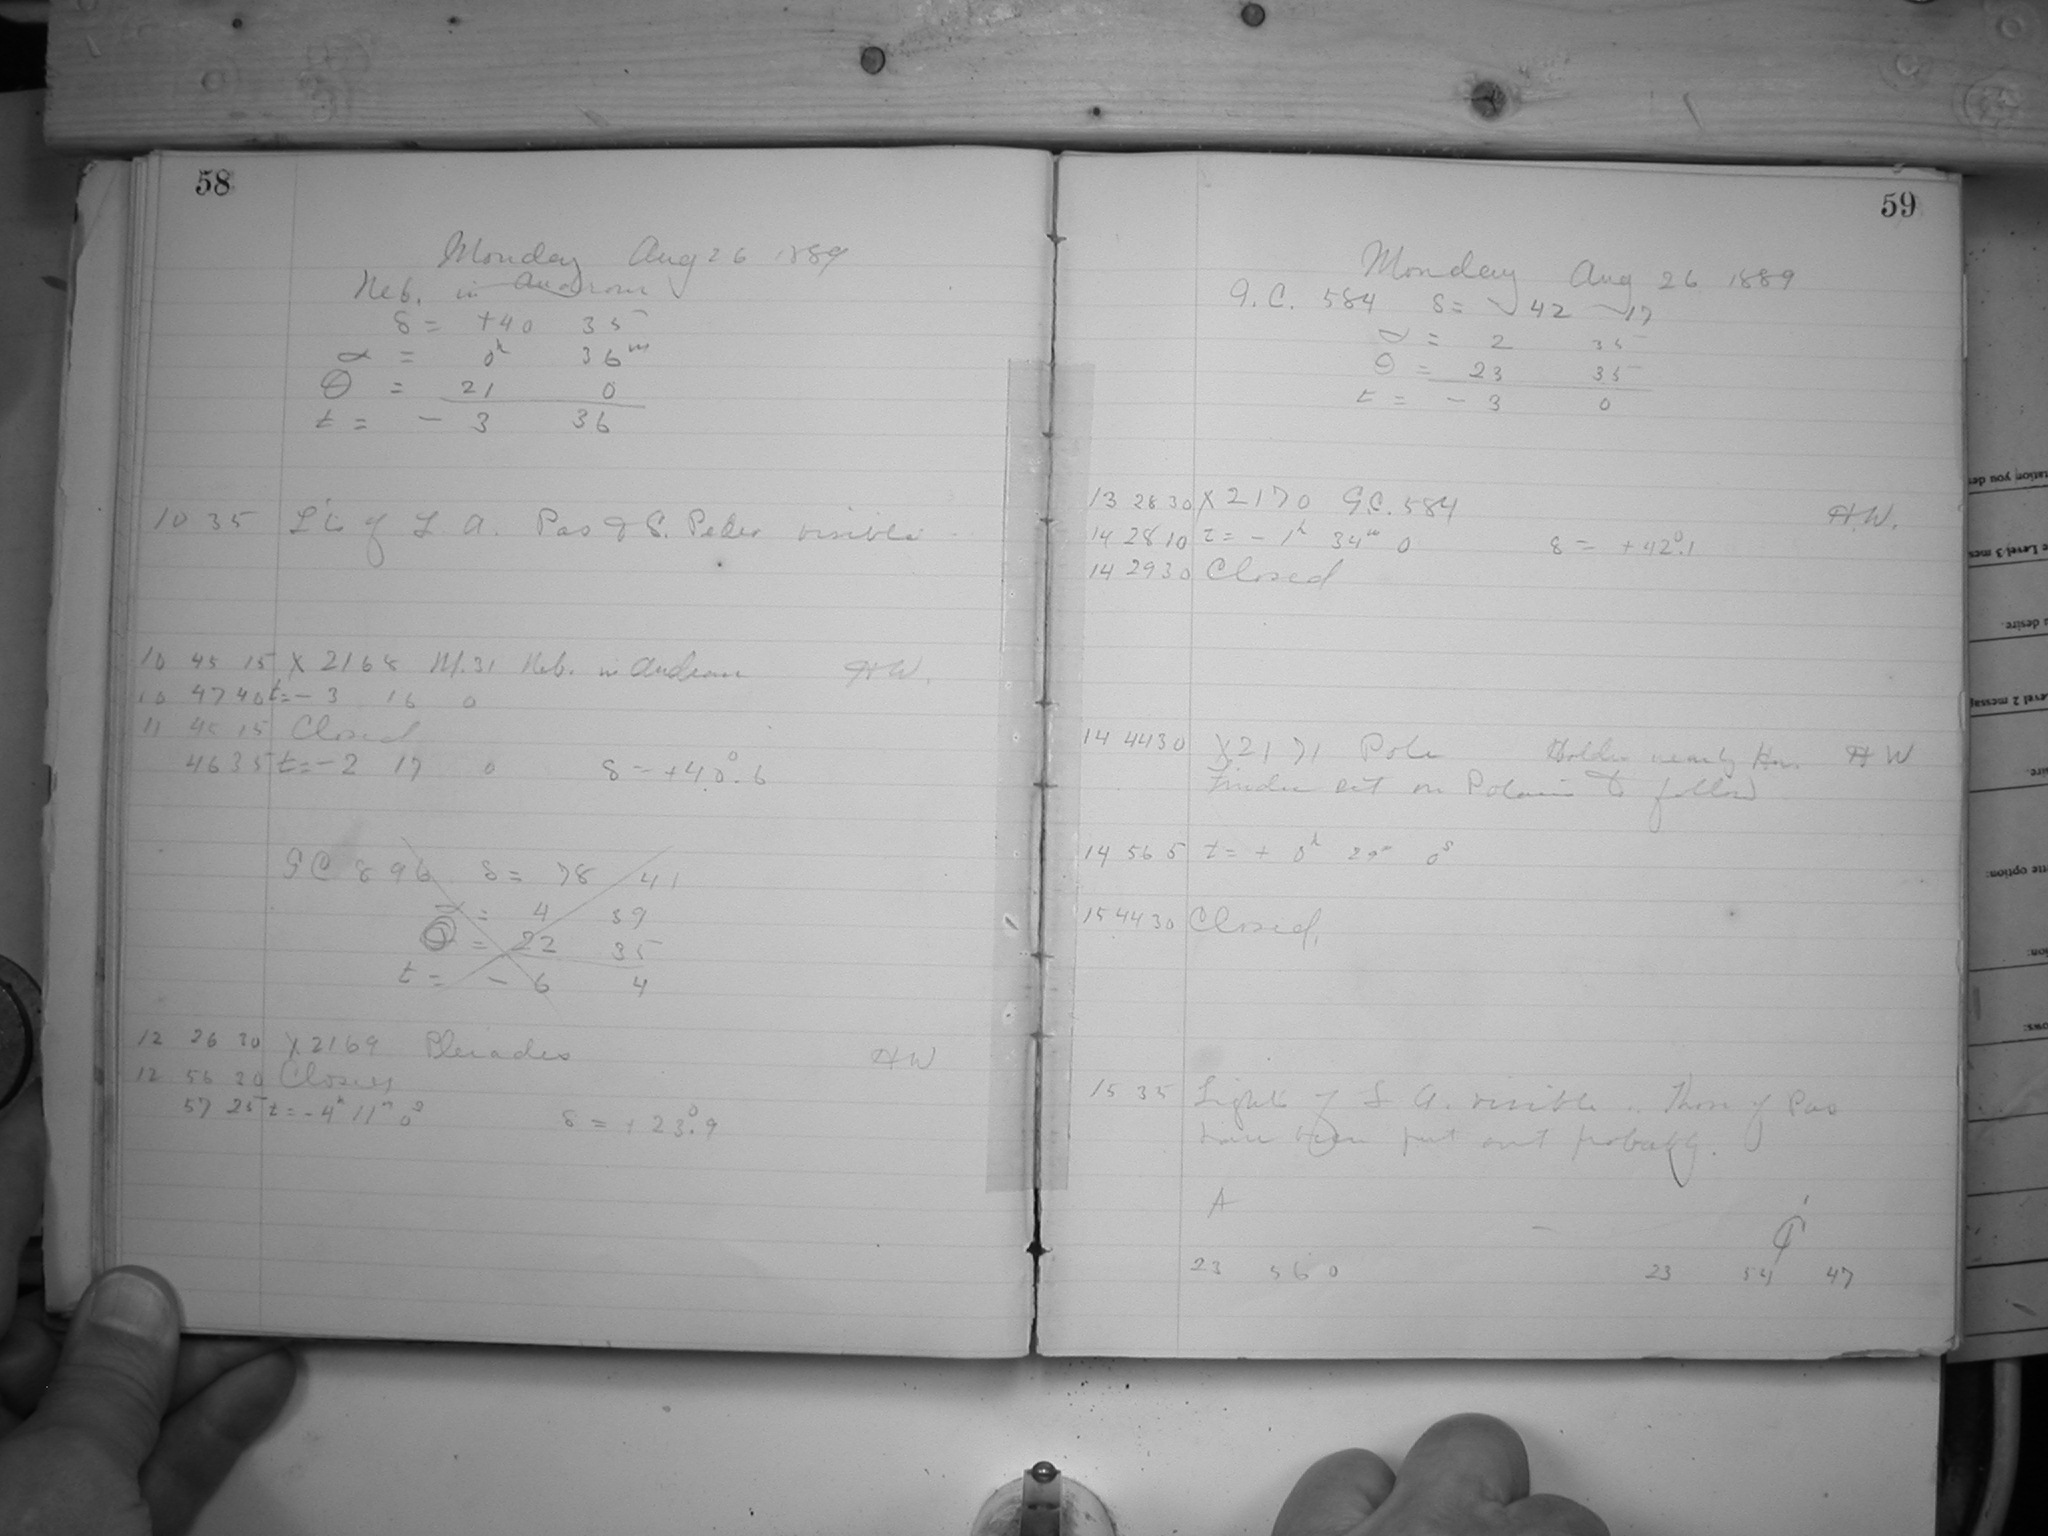 58
Monday Aug 26 1889
Neb. in Androm
δ = +40 35
α = 0h 36m
Θ = 21 0
t = - 3 36
10 35 L'ts of L. A. Pas & S. Pedro visible
10 45 15 X 2168 M. 31 Neb. in Androm H.W.
10 47 40 t = - 3 16 0
11 45 15 Closed
46 35 t = - 2 17 0 δ = +40°.6
GC 896 δ = 78 41
α = 4 39
Θ = 22 35
t = - 6 4
12 26 30 X 2169 Pleiades HW
12 56 30 Closed
57 25 t = - 4h 11m 0s δ = + 23°.9
59
Monday Aug 26 1889
G.C. 584 δ = 42 17
α = 2 35
Θ = 23 35
t = - 3 0
13 28 30 X 2170 G.C. 584 H.W.
14 28 10 t = - 1h 34m 0 δ = +42°.1
14 29 30 Closed
14 44 30 X 2171 Pole Holder nearly Hor. HW
Finder set on Polaris & follow
14 56 5 t = + 0h 29m 0s
15 44 30 Closed.
15 35 Lights of L. A. visible. Those of Pas
have been put out probably.
A
23 56 0 23 54 47